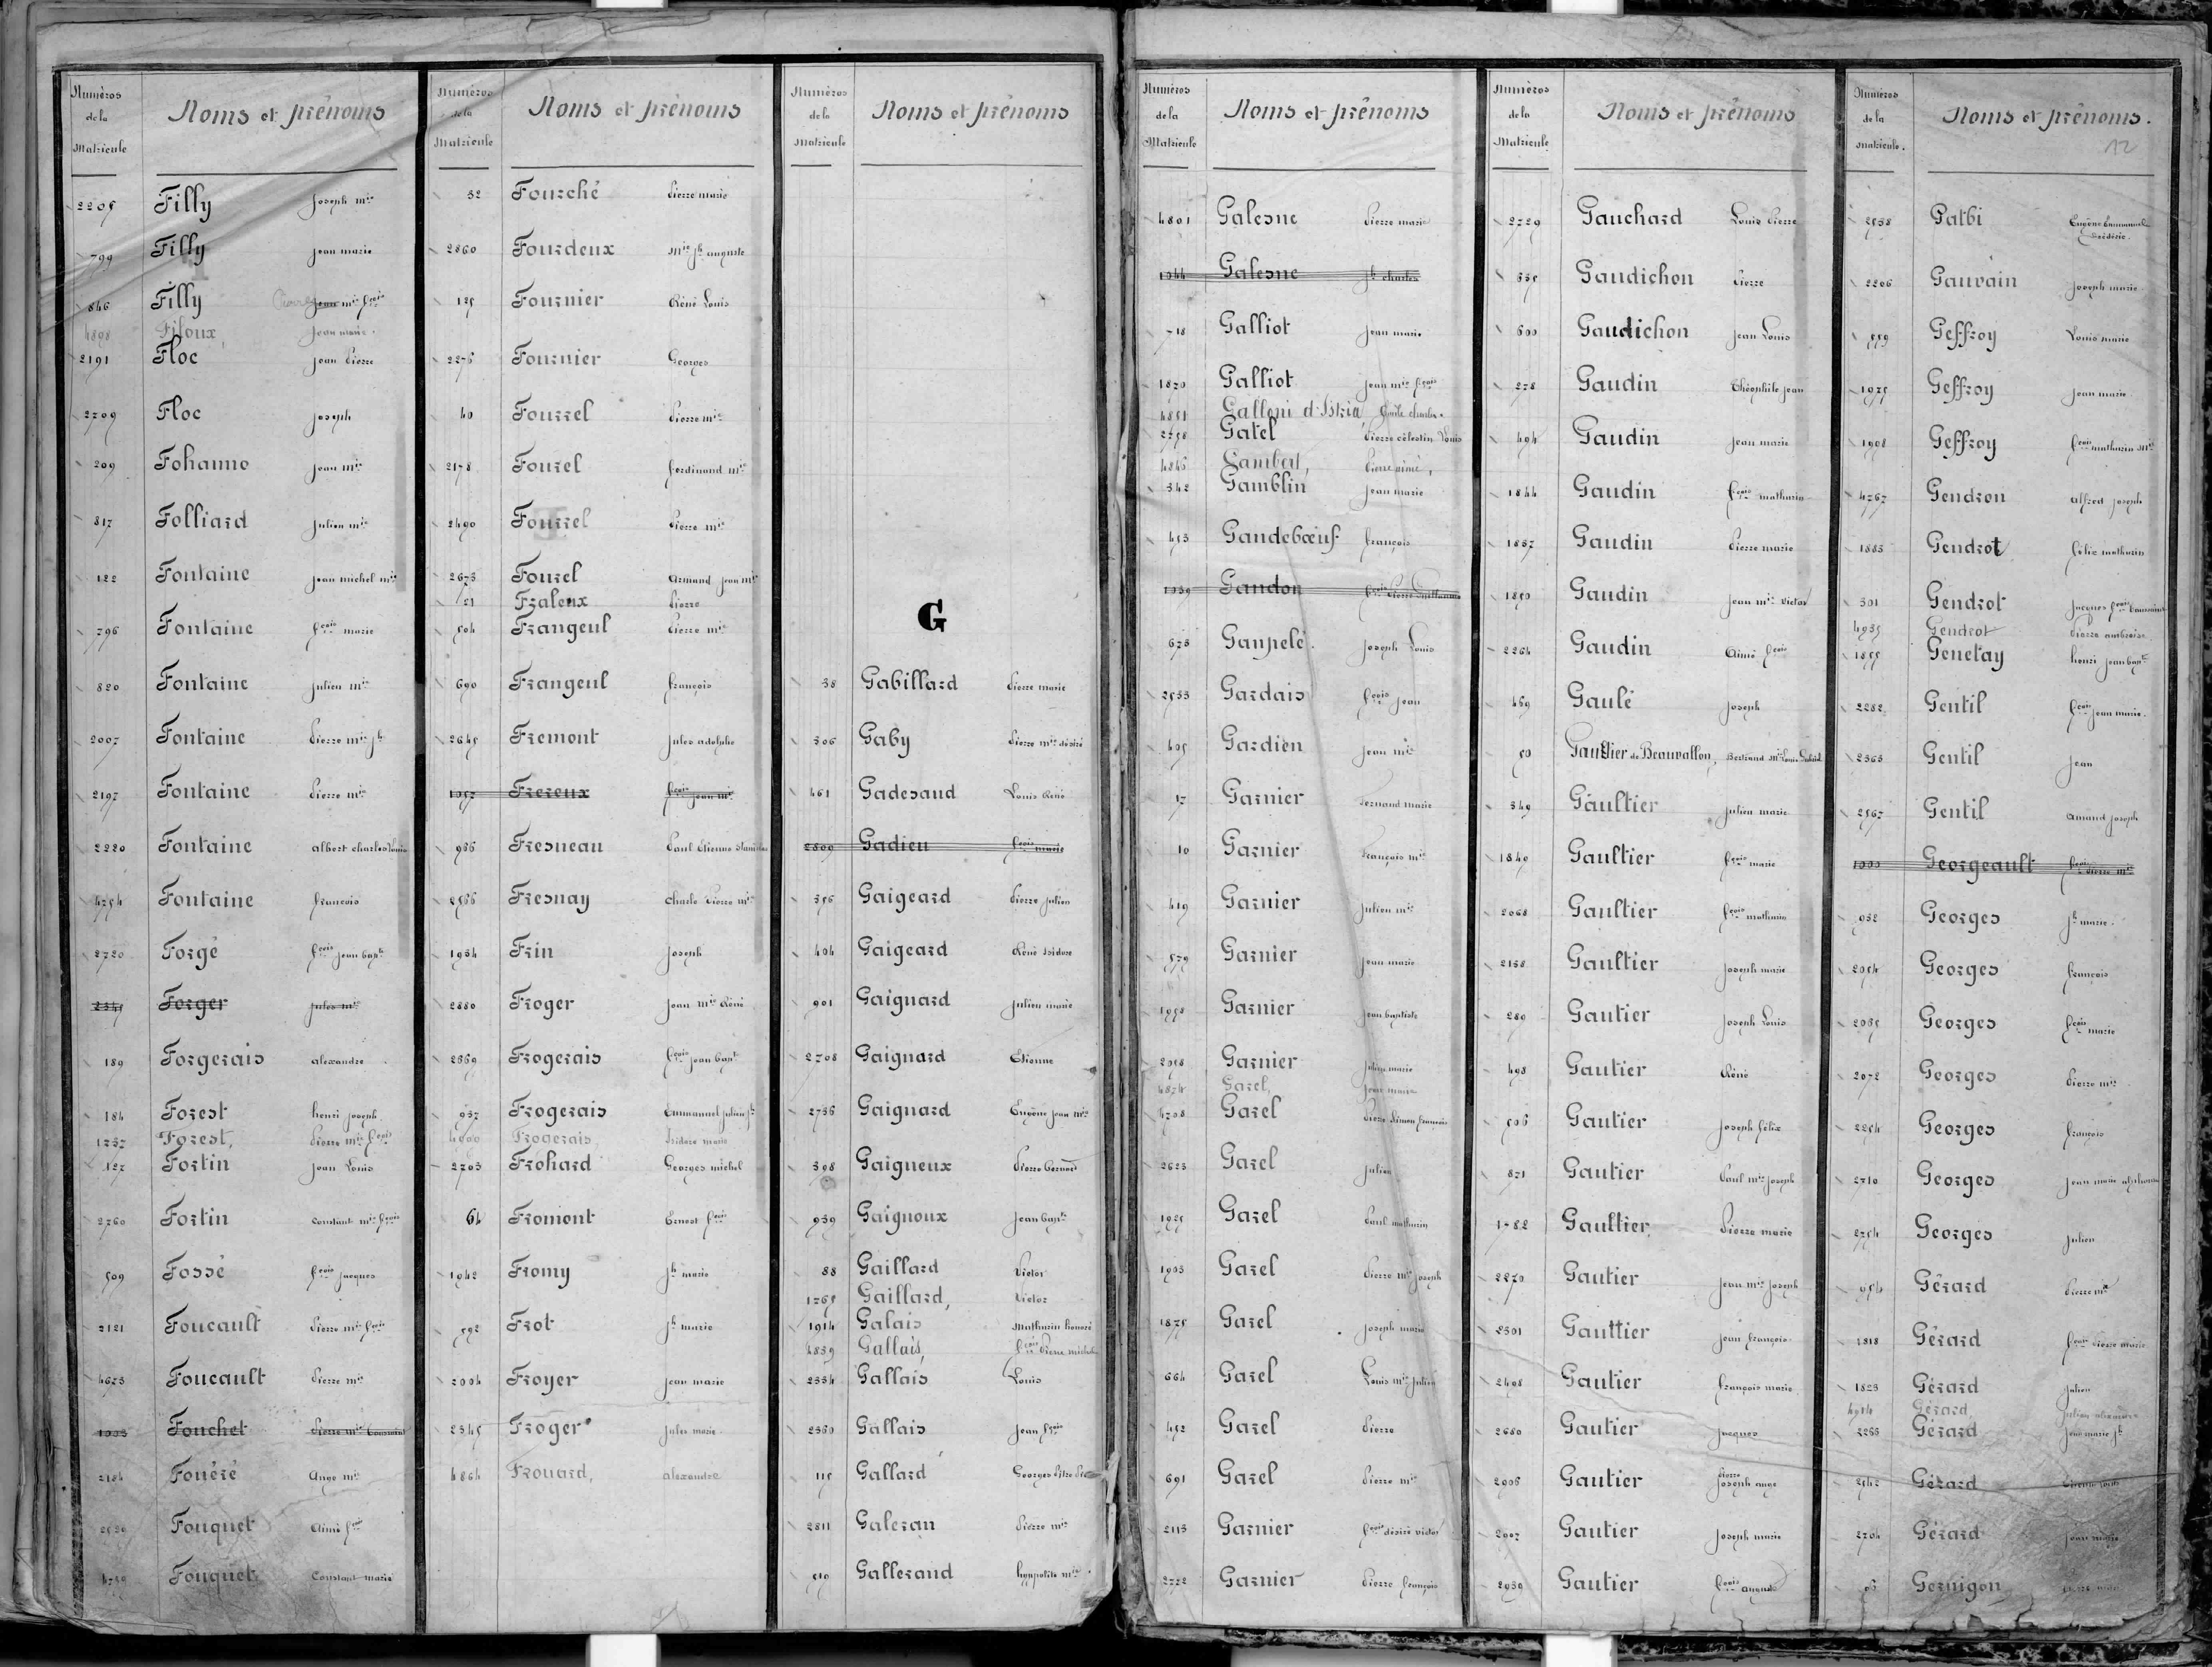 Numéros de la Matricule Noms et prénoms
Filly Joseph mie
799 Filly Jean marie
846 Filly mie
4898 Filoux Jean marie
2191 Floc Jean Pierre
2709 Floc Joseph
209 Fohanno Jean mie
817 Folliard Julien mie
122 Fontaine Jean michel mie
796 Fontaine fçois marie
820 Fontaine Julien mie
2007 Fontaine Pierre mie jh
2197 Fontaine Pierre mie
2220 Fontaine albert charles Louis
Fontaine françois
2720 Forgé fçois Jean bapte
Forger Jules mie
189 Forgerais alexandre
184 Forest henri joseph
Forest, Pierre mie fçois
127 Fortin Jean Louis
2760 Fortin Constant mie fçois
509 Fossé fçois Jacques
2121 Foucault Pierre mie fçois
4675 Foucault Pierre mie
Fouchet Pierre mie Toussaint
2184 Fouéré Ange mie
Fouquet Aimé fçois
Fouquet Constant marie
Numéros de la Matricule Noms et prénoms
52 Fourché Pierre marie
2860 Fourdeux Mie jh auguste
125 Fournier Réné Louis
2276 Fournier Georges
40 Fourrel Pierre mie
2178 Fourel ferdinand mie
2490 Fourrel Pierre mie
2675 Fourel Armand Jean mie
21 Fraleux Pierre
504 Frangeul Pierre mie
690 Frangeul françois
2645 Fremont Jules adolphe
Frereux fçois Jean mie
966 Fresneau Paul Etienne Stanislas
2566 Fresnay Charle Pierre mie
1954 Frin Joseph
2880 Froger Jean mie Réné
2669 Frogerais fçois Jean bapte
937 Frogerais Emmanuel Julien jh
4900 Frogerais Isidore marie
2703 Frohard Georges michel
64 Fromont Ernest fçois
1942 Fromy jh marie
592 Frot jh marie
2004 Froyer Jean marie
2345 Froger Jules marie
4864 Frouard, alexandre
Numéros de la Matricule Noms et prénoms
G
38 Gabillard Pierre marie
306 Gaby Pierre mie désiré
461 Gadesaud Louis Réné
2809 Gadieu fçois marie
356 Gaigeard Pierre Julien
404 Gaigeard Réné Isidore
901 Gaignard Julien marie
2708 Gaignard Etienne
2756 Gaignard Eugène Jean mie
398 Gaigneux Pierre bernard
959 Gaignoux Jean bapte
88 Gaillard Victor
1765 Gaillard, Victor
1914 Galais Mathurin honoré
4859 Gallais, fçois Pierre
2354 Gallais Louis
2360 Gallais Jean fçois
115 Gallard Georges
2811 Galeran Pierre mie
519 Gallerand hyppolite mie
Numéros de la Matricule Noms et prénoms
4801 Galesne Pierre marie
1044 Galesne jh charles
718 Galliot Jean marie
1820 Galliot Jean mie fçois
4851 Galloni d'Istria, Emile charles
2758 Gatel Pierre célestin Louis
4846 Gambert, Pierre aimé,
342 Gamblin Jean marie
453 Gandebœuf françois
1039 Gandon fçois Pierre Guillaume
675 Ganpelé Joseph Louis
2533 Gardais fçois Jean
405 Gardien Jean mie
17 Garnier fernand marie
10 Garnier François mie
419 Garnier Julien mie
579 Garnier Jean marie
1958 Garnier Jean baptiste
2058 Garnier Julien marie
4874 Garel, Jean marie
4708 Garel Pierre Simon françois
2623 Garel Julien
1925 Garel Paul mathurin
1905 Garel Pierre mie Joseph
1875 Garel Joseph marie
664 Garel Louis mie Julien
452 Garel Pierre
691 Garel Pierre mie
2113 Garnier fçois désiré victor
2772 Garnier Pierre françois
Numéros de la Matricule Noms et prénoms
2729 Gauchard Louis Pierre
Gaudichon Pierre
600 Gaudichon Jean Louis
278 Gaudin Théophile Jean
494 Gaudin Jean marie
1844 Gaudin fçois mathurin
1857 Gaudin Pierre marie
1850 Gaudin Jean mie Victor
2264 Gaudin Aimé fçois
469 Gaulé Joseph
50 Gaultier de Beauvallon, Bertrand Mie Louis
349 Gaultier Julien marie
1849 Gaultier fçois marie
2068 Gaultier fçois mathurin
2158 Gaultier Joseph marie
280 Gautier Joseph Louis
498 Gautier Réné
506 Gautier Joseph félix
871 Gautier Paul mie Joseph
1782 Gaultier Pierre marie
2270 Gautier Jean mie Joseph
2301 Gauttier Jean françois
2498 Gautier françois marie
2680 Gautier Jacques
2906 Gautier Pierre Joseph ange
2907 Gautier Joseph marie
2959 Gautier fçois auguste
Numéros de la Matricule. Noms et prénoms.
12
2538 Gatbi Eugène Emmanuel frédéric
2206 Gauvain Joseph marie
559 Geffroy Louis marie
1975 Geffroy Jean marie
1908 Geffroy fçois mathurin Mie
4767 Gendron alfred Joseph
1885 Gendrot félix mathurin
301 Gendrot Jacques fçois Toussaint
4935 Gendrot Pierre ambroise
1855 Genetay henri Jean bapte
2282 Gentil fçois Jean marie
2363 Gentil Jean
2567 Gentil Amand Joseph
Georgeault fçois Pierre mie
952 Georges jh marie
2054 Georges françois
2065 Georges fçois marie
2072 Georges Pierre mie
2254 Georges françois
2710 Georges Jean marie alphonse
2754 Georges Julien
954 Gérard Pierre mie
1818 Gérard fçois Pierre marie
1823 Gérard Julien
4914 Gérard Julien alexandre
2265 Gérard Jean marie jh
Gérard
2704 Gérard Jean marie
Gernigon